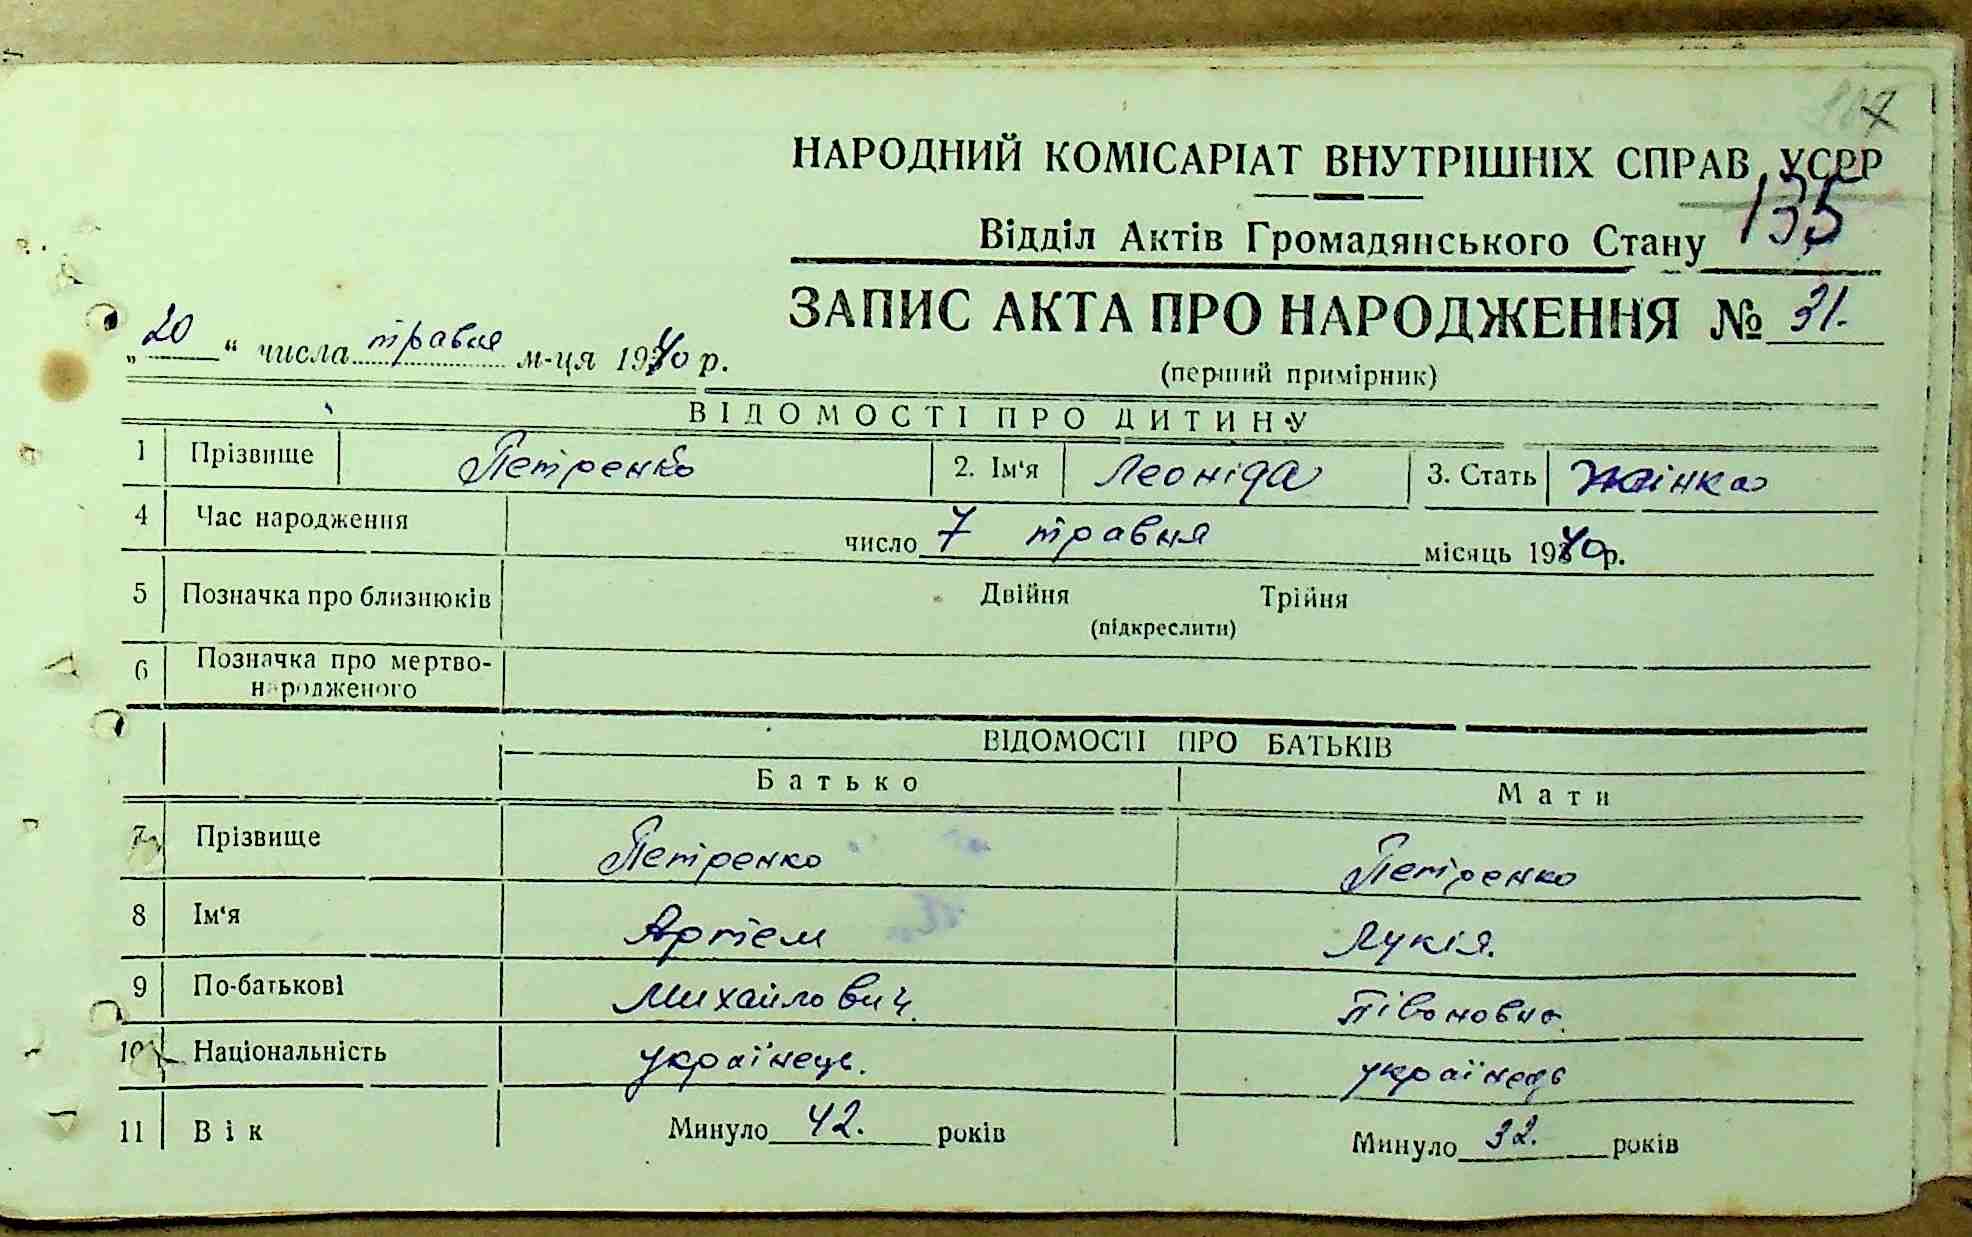 НАРОДНИЙ КОМІСАРІАТ ВНУТРІШНІХ СПРАВ УСРР
135
Відділ Актів Громадянського Стану
ЗАПИС АКТА ПРО НАРОДЖЕННЯ № 31.
„20“ числа травня м-ця 1940 р.
(перший примірник)
ВІДОМОСТІ ПРО ДИТИНУ
1 Прізвище Петренко 2. Ім'я Леоніда 3. Стать Жінка
4 Час народження число 7 травня місяць 1940р.
5 Позначка про близнюків Двійня Трійня
(підкреслити)
6 Позначка про мертво-
народженого
ВІДОМОСТІ ПРО БАТЬКІВ
Батько Мати
7 Прізвище Петренко Петренко
8 Ім'я Артем Лукія.
9 По-батькові Михайлович. Півоновна.
10 Національність українець. українець
11 Вік Минуло 42. років Минуло 32. років